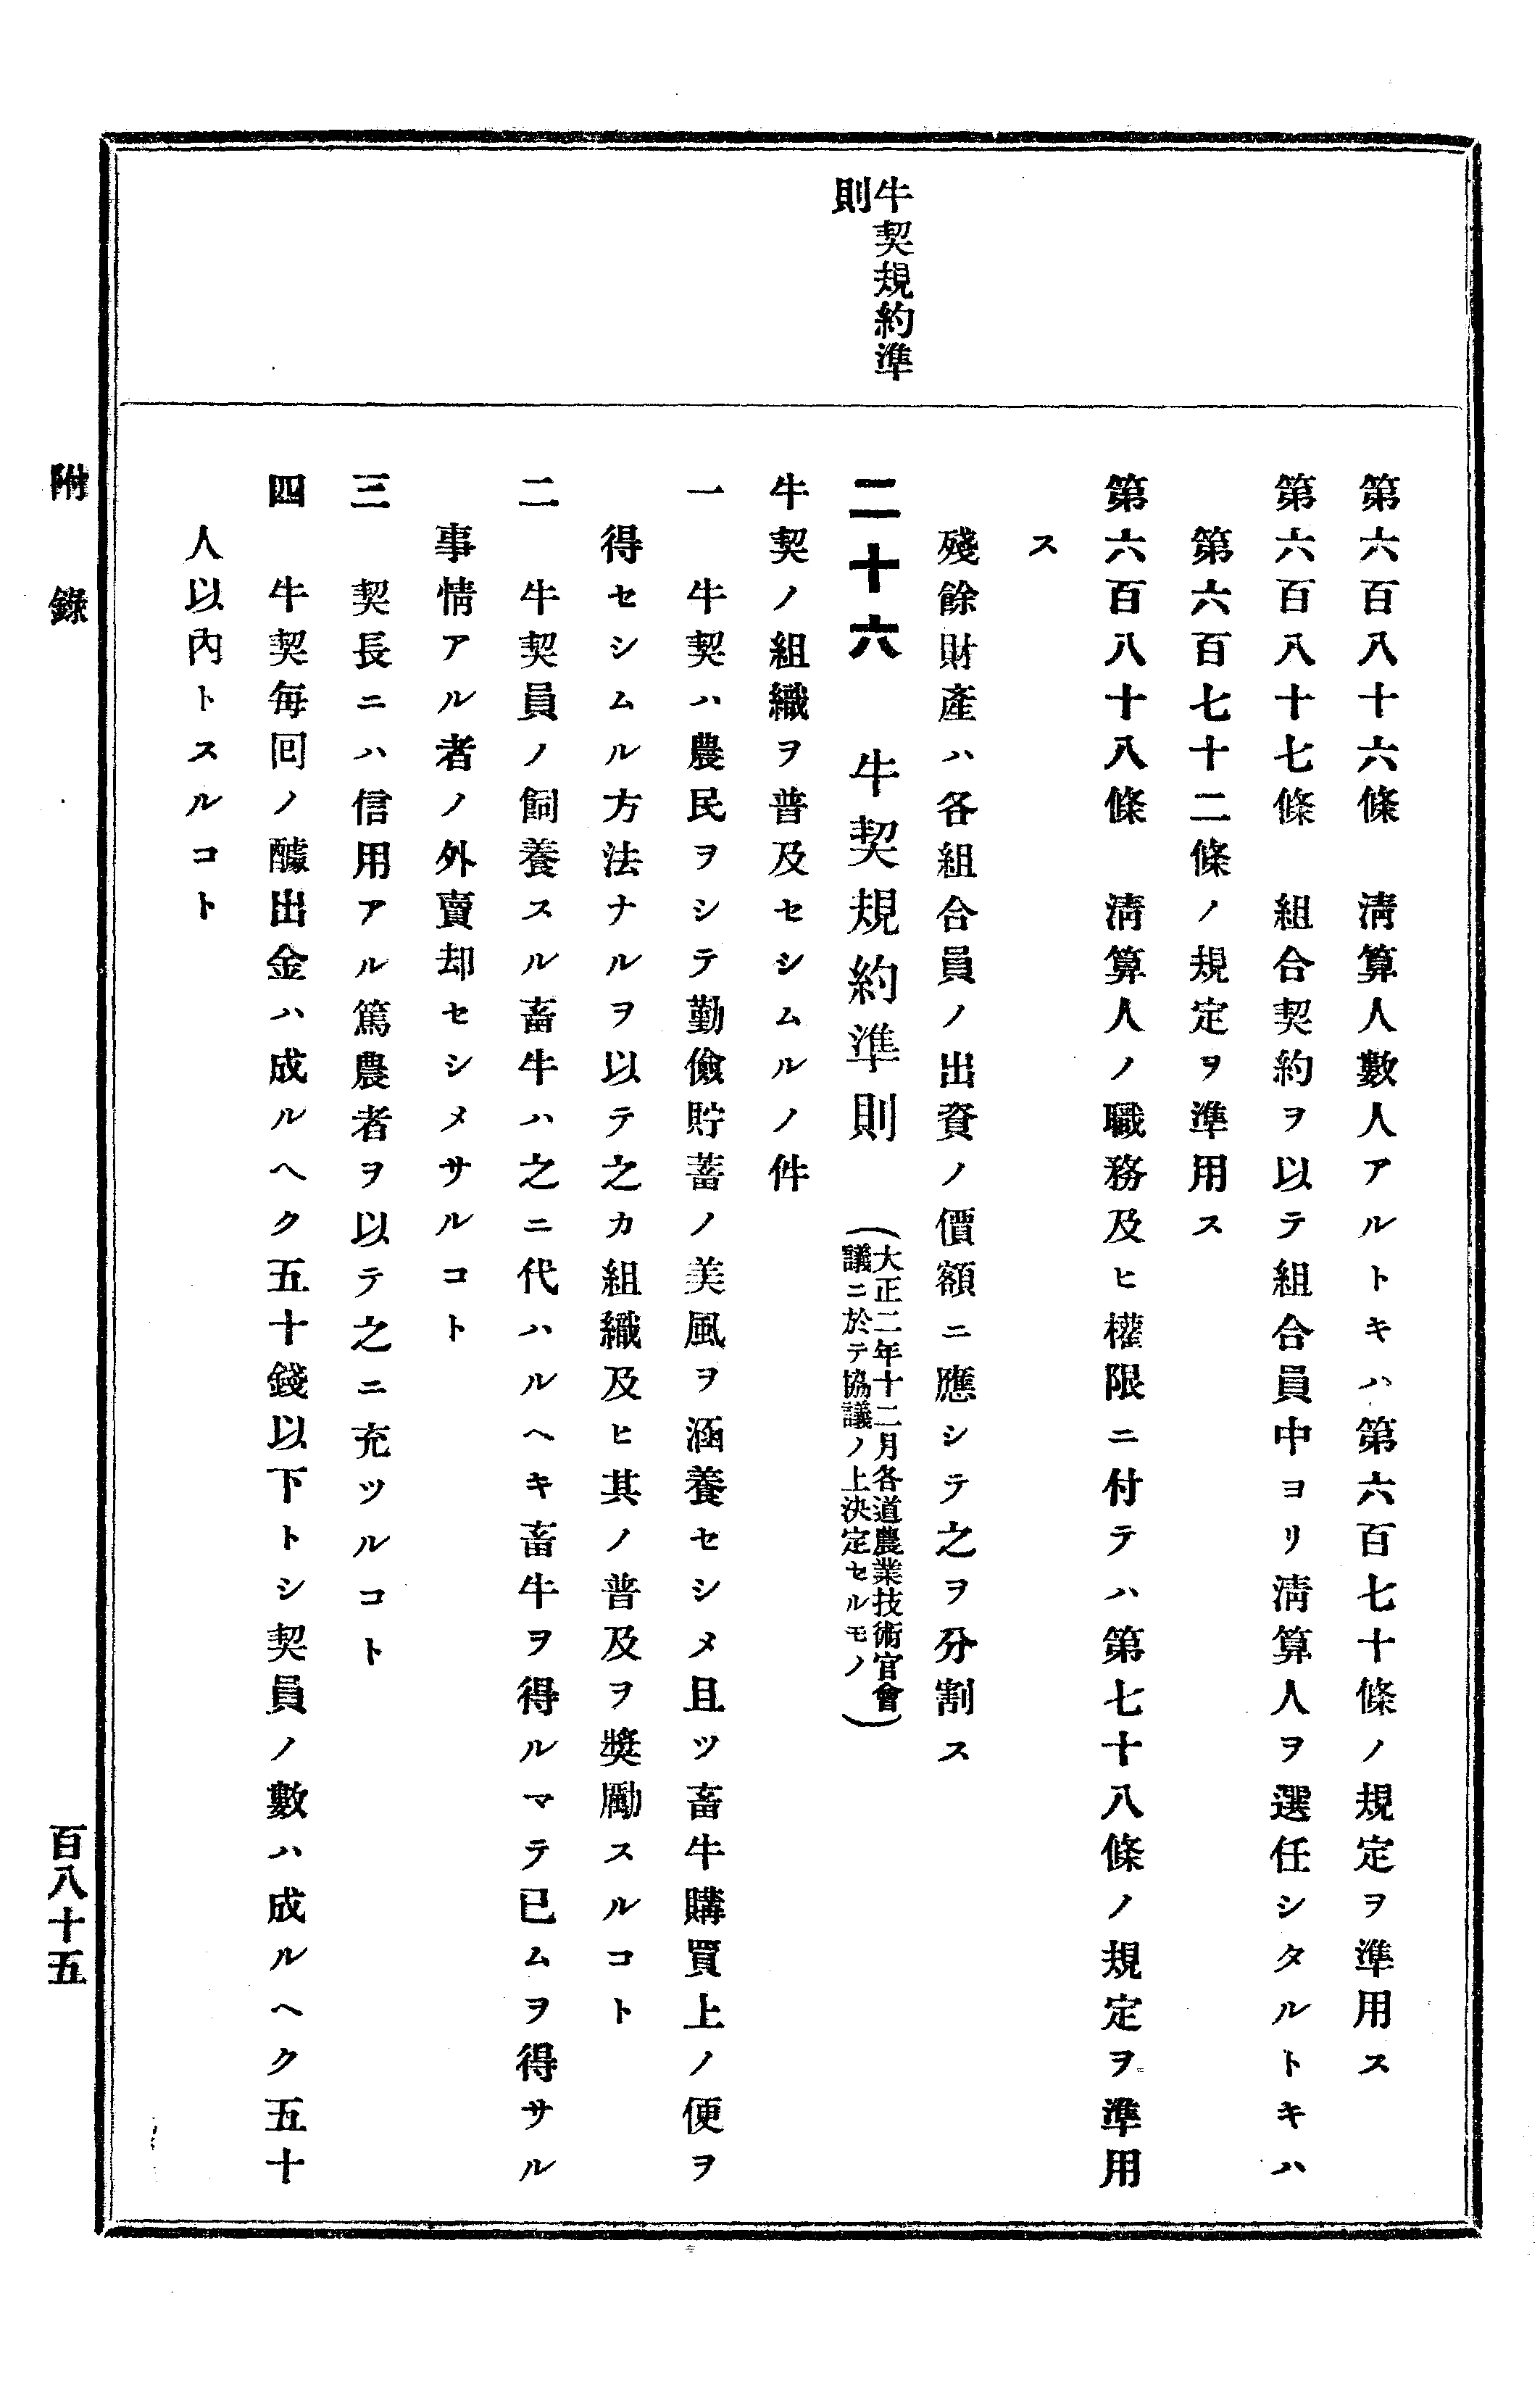 牛契規約準
則
第六百八十六條　淸算人數人アルトキハ第六百七十條ノ規定ヲ準用ス
第六百八十七條　組合契約ヲ以テ組合員中ヨリ淸算人ヲ選任シタルトキハ
第六百七十二條ノ規定ヲ準用ス
第六百八十八條　淸算人ノ職務及ヒ權限ニ付テハ第七十八條ノ規定ヲ準用
ス
殘餘財產ハ各組合員ノ出資ノ價額ニ應シテ之ヲ分割ス
二十六　牛契規約準則
（大正二年十二月各道農業技術官會
議ニ於テ協議ノ上決定セルモノ）
牛契ノ組織ヲ普及セシムルノ件
一　牛契ハ農民ヲシテ勤儉貯蓄ノ美風ヲ涵養セシメ且ツ畜牛購買上ノ便ヲ
得セシムル方法ナルヲ以テ之カ組織及ヒ其ノ普及ヲ奬勵スルコト
二　牛契員ノ飼養スル畜牛ハ之ニ代ハルヘキ畜牛ヲ得ルマテ已ムヲ得サル
事情アル者ノ外賣却セシメサルコト
三　契長ニハ信用アル篤農者ヲ以テ之ニ充ツルコト
四　牛契每囘ノ醵出金ハ成ルヘク五十錢以下トシ契員ノ數ハ成ルヘク五十
人以內トスルコト
附錄
百八十五